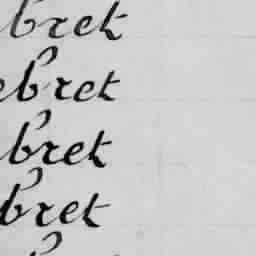 bret
ebret
bret
bret